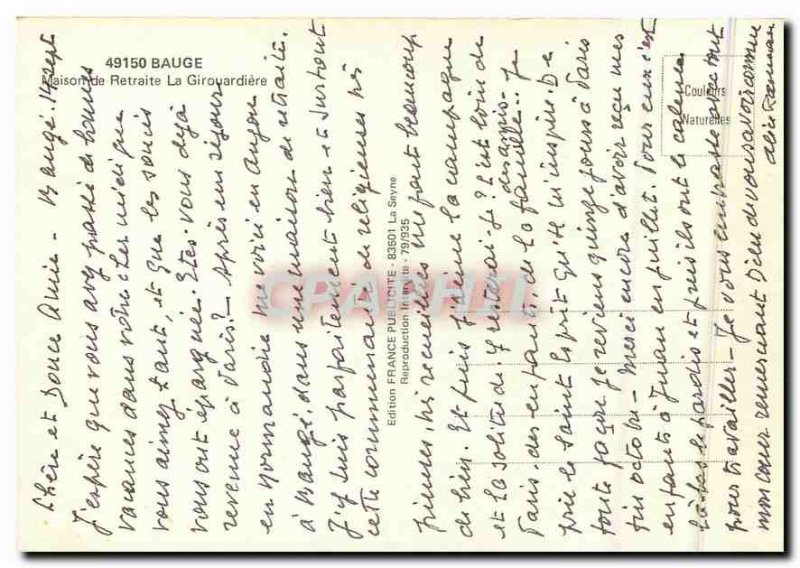 49150 BAUGE
Maison de Retraite La Girouardière
Couleurs
Naturelles
Edition FRANCE PUBLICITE - 83501 La Seyne
Reproduction Interdite - 79/935
CPARAMA
Chère et Douce Amie - Baugé. 14 sept
J'espère que vous avez passé de bonnes
vacances dans votre cher midi que
vous aimez tant, et que les soucis
vous ont épargnée. Etes-vous déjà
revenue à Paris? - Après un séjour
en normandie me voici en anjou
à Baugé. dans une maison de retraite.
J'y suis parfaitement bien et surtout
cette communauté de religieuses très
jeunes très recueillies me font beaucoup
de bien. Et puis j'aime la campagne
et la solitude. y resterai-je? c'est loin de
Paris. des enfants. de la famille... des amis. Je
prie le Saint Esprit qu'il m'inspire. De
toute façon je reviens quinze jours à Paris
fin octobre - merci encore d'avoir reçu mes
enfants à Juan en juillet. Pour eux c'est
là-bas le paradis et puis ils ont le calme
pour travailler - Je vous embrasse avec tout
mon cœur remerciant Dieu de vous avoir connue